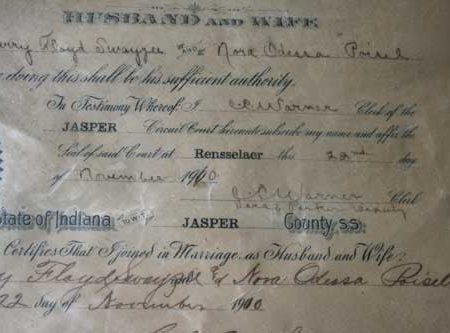 HUSBAND AND WIFE
Floyd Swayzee and Nora Odessa Poisel
doing this shall be his sufficient authority.
In Testimony Whereof, I C.C. Warner Clerk of the
JASPER Circuit Court hereunto subscribe my name and affix the
Seal of said Court at Rensselaer this 22nd day
of November 1910
C.C. Warner Clerk
Deputy
State of Indiana To-Wit: JASPER County, S.S.
Certifies That I joined in Marriage as Husband and Wife
Floyd Swayzee & Nora Odessa Poisel
22 day of November 1910